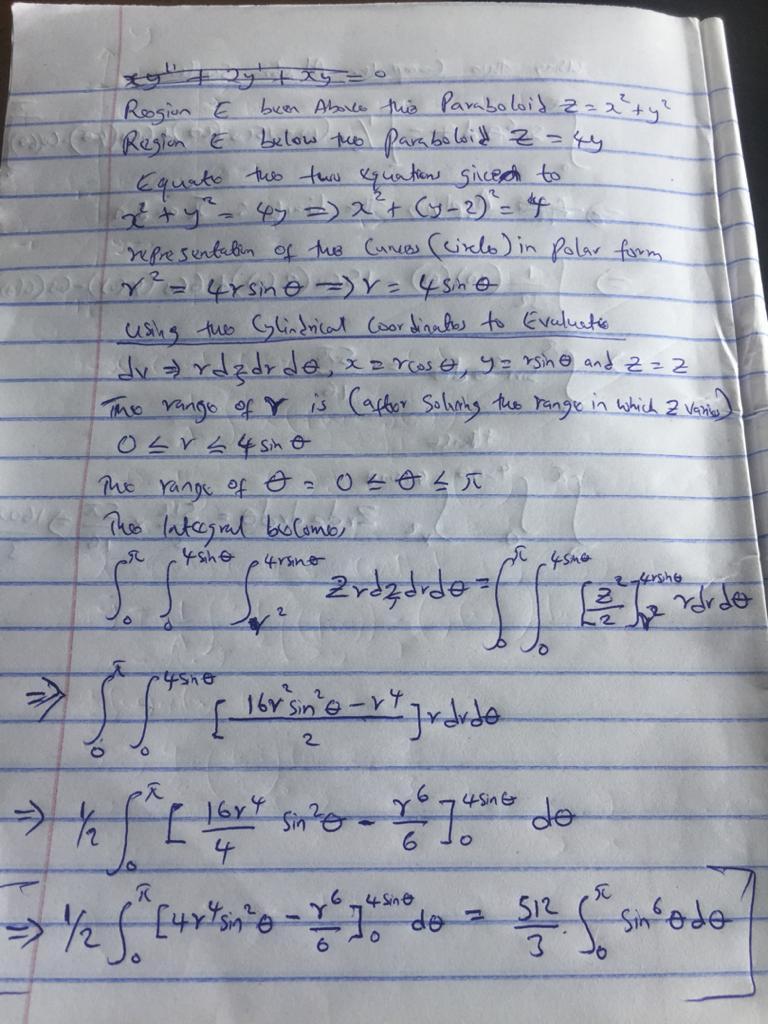 xy'' + 2y' + xy = 0
Region E been Above the Paraboloid z = x² + y²
Region E below the Paraboloid z = 4y
Equate the two equations given to
x² + y² = 4y => x² + (y-2)² = 4
representation of the Curves (circle) in polar form
r² = 4r sin θ => r = 4 sin θ
using the Cylindrical Coordinates to Evaluate
dv => r dz dr dθ, x = r cos θ, y = r sin θ and z = z
The range of r is (after solving the range in which z varies)
0 ≤ r ≤ 4 sin θ
The range of θ = 0 ≤ θ ≤ π
The Integral becomes,
∫₀^π ∫₀^{4sinθ} ∫_{r²}^{4rsinθ} z r dz dr dθ = ∫₀^π ∫₀^{4sinθ} [z²/2]_{r²}^{4rsinθ} r dr dθ
=> ∫₀^π ∫₀^{4sinθ} [(16r² sin²θ - r⁴)/2] r dr dθ
=> 1/2 ∫₀^π [16r⁴/4 sin²θ - r⁶/6]₀^{4sinθ} dθ
=> 1/2 ∫₀^π [4r⁴ sin²θ - r⁶/6]₀^{4sinθ} dθ = 512/3 · ∫₀^π sin⁶θ dθ